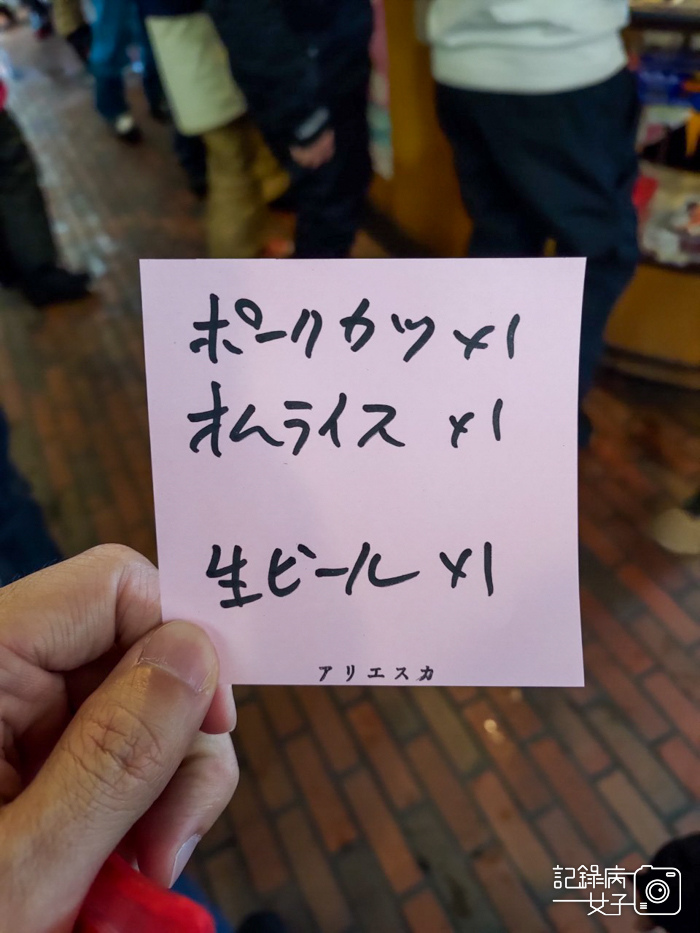 ポークカツ×1
オムライス ×1
生ビール ×1
アリエスカ
記錄病
女子